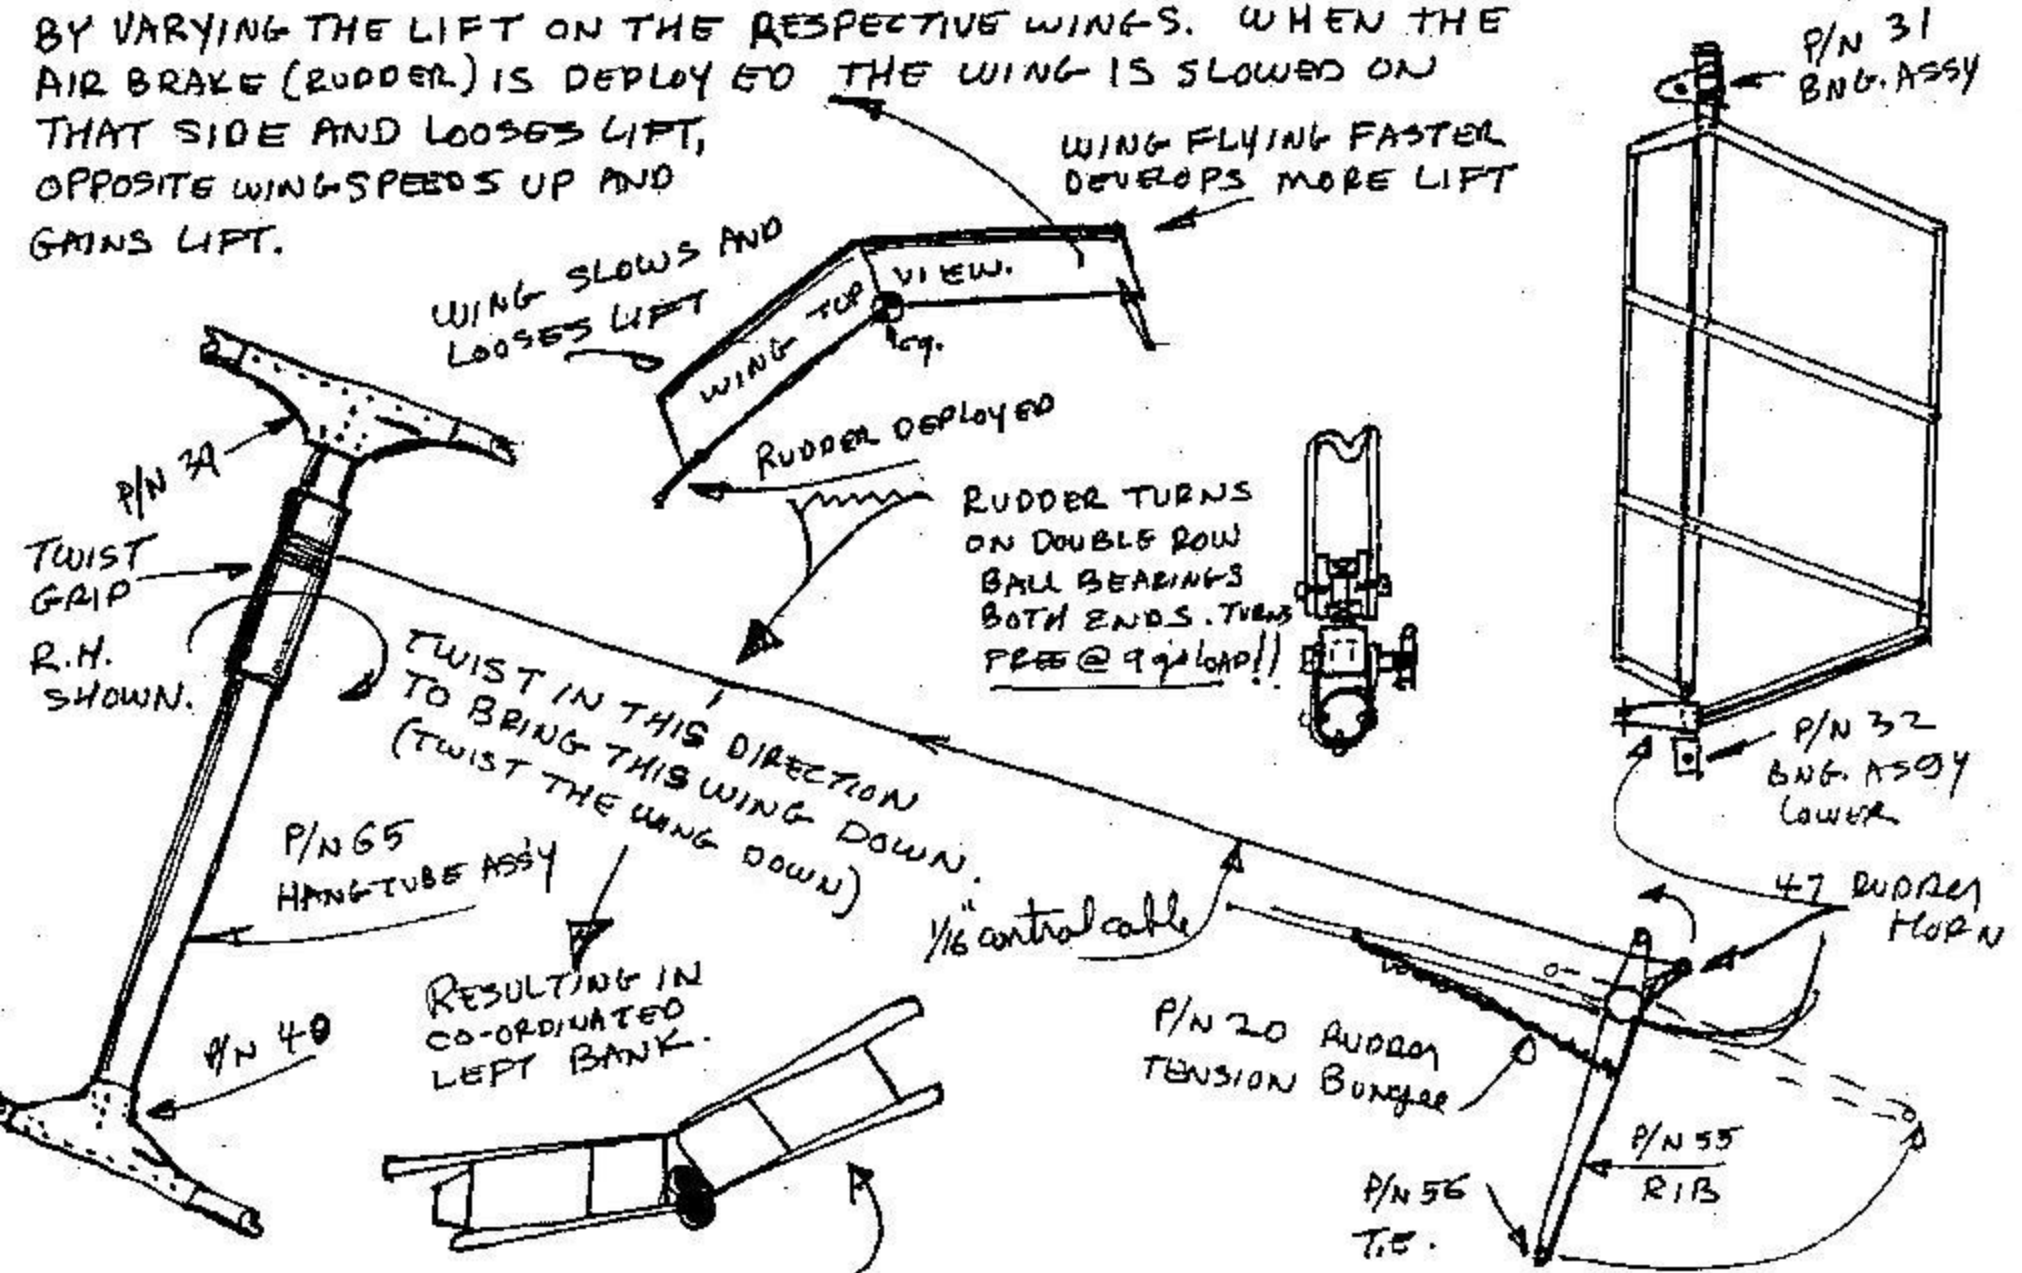 BY VARYING THE LIFT ON THE RESPECTIVE WINGS. WHEN THE
AIR BRAKE (RUDDER) IS DEPLOYED THE WING IS SLOWED ON
THAT SIDE AND LOOSES LIFT,
OPPOSITE WING SPEEDS UP AND
GAINS LIFT.
P/N 31
BNG. ASSY
WING FLYING FASTER
DEVELOPS MORE LIFT
WING SLOWS AND
LOOSES LIFT
WING TOP VIEW.
cg.
RUDDER DEPLOYED
P/N 39
TWIST
GRIP
R.H.
SHOWN.
RUDDER TURNS
ON DOUBLE ROW
BALL BEARINGS
BOTH ENDS. TURNS
FREE @ 9 g's LOAD!!
TWIST IN THIS DIRECTION
TO BRING THIS WING DOWN.
(TWIST THE WING DOWN)
P/N 32
BNG. ASSY
LOWER
P/N 65
HANGTUBE ASS'Y
1/16" control cable
47 RUDDER
HORN
RESULTING IN
CO-ORDINATED
LEFT BANK.
P/N 40
P/N 20 RUDDER
TENSION Bungee
P/N 55
RIB
P/N 56
T.E.